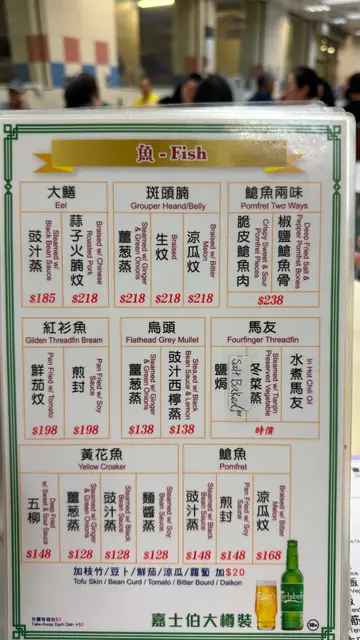 魚 - Fish
大鱔
Eel
Steamed w/ Black Bean Sauce
豉汁蒸
$185
Braised w/ Chinese Roasted Pork
蒜子火腩炆
$218
斑頭腩
Grouper Heand/Belly
Steamed w/ Ginger & Green Onions
薑葱蒸
$218
Braised
生炆
$218
Braised w/ Bitter Melon
涼瓜炆
$218
鮕魚兩味
Pomfret Two Ways
Crispy Sweet & Sour Pomfret Pieces
脆皮鮕魚肉
Deep Fried Salt & Pepper Pomfret Bones
椒鹽鮕魚骨
$238
紅衫魚
Gilden Threadfin Bream
Pan Fried w/ Tomato
鮮茄炆
$198
Pan Fried w/ Soy Sauce
煎封
$198
烏頭
Flathead Grey Mullet
Steamed w/ Ginger & Green Onions
薑葱蒸
$138
Steamed w/ Black Bean Sauce & Lemon
豉汁西檸蒸
$138
馬友
Fourfinger Threadfin
Salt Baked
鹽焗
Steamed w/ Tianjin Preserved Vegetable
冬菜蒸
In Hot Chili Oil
水煮馬友
時價
黃花魚
Yellow Croaker
Deep Fried w/ Sweet & Sour Sauce
五柳
$148
Steamed w/ Ginger & Green Onions
薑葱蒸
$128
Steamed w/ Black Bean Sauce
豉汁蒸
$128
Steamed w/ Soy Bean Sauce
麵醬蒸
$128
鮕魚
Pomfret
Steamed w/ Black Bean Sauce
豉汁蒸
$148
Pan Fried w/ Soy Sauce
煎封
$148
Braised w/ Bitter Melon
涼瓜炆
$168
加枝竹/豆卜/鮮茄/涼瓜/蘿蔔 加$20
Tofu Skin / Bean Curd / Tomato / Bitter Bourd / Daikon
外賣每個加$2
Take-Away Each Dish +$2
嘉士伯大樽裝
Carlsberg